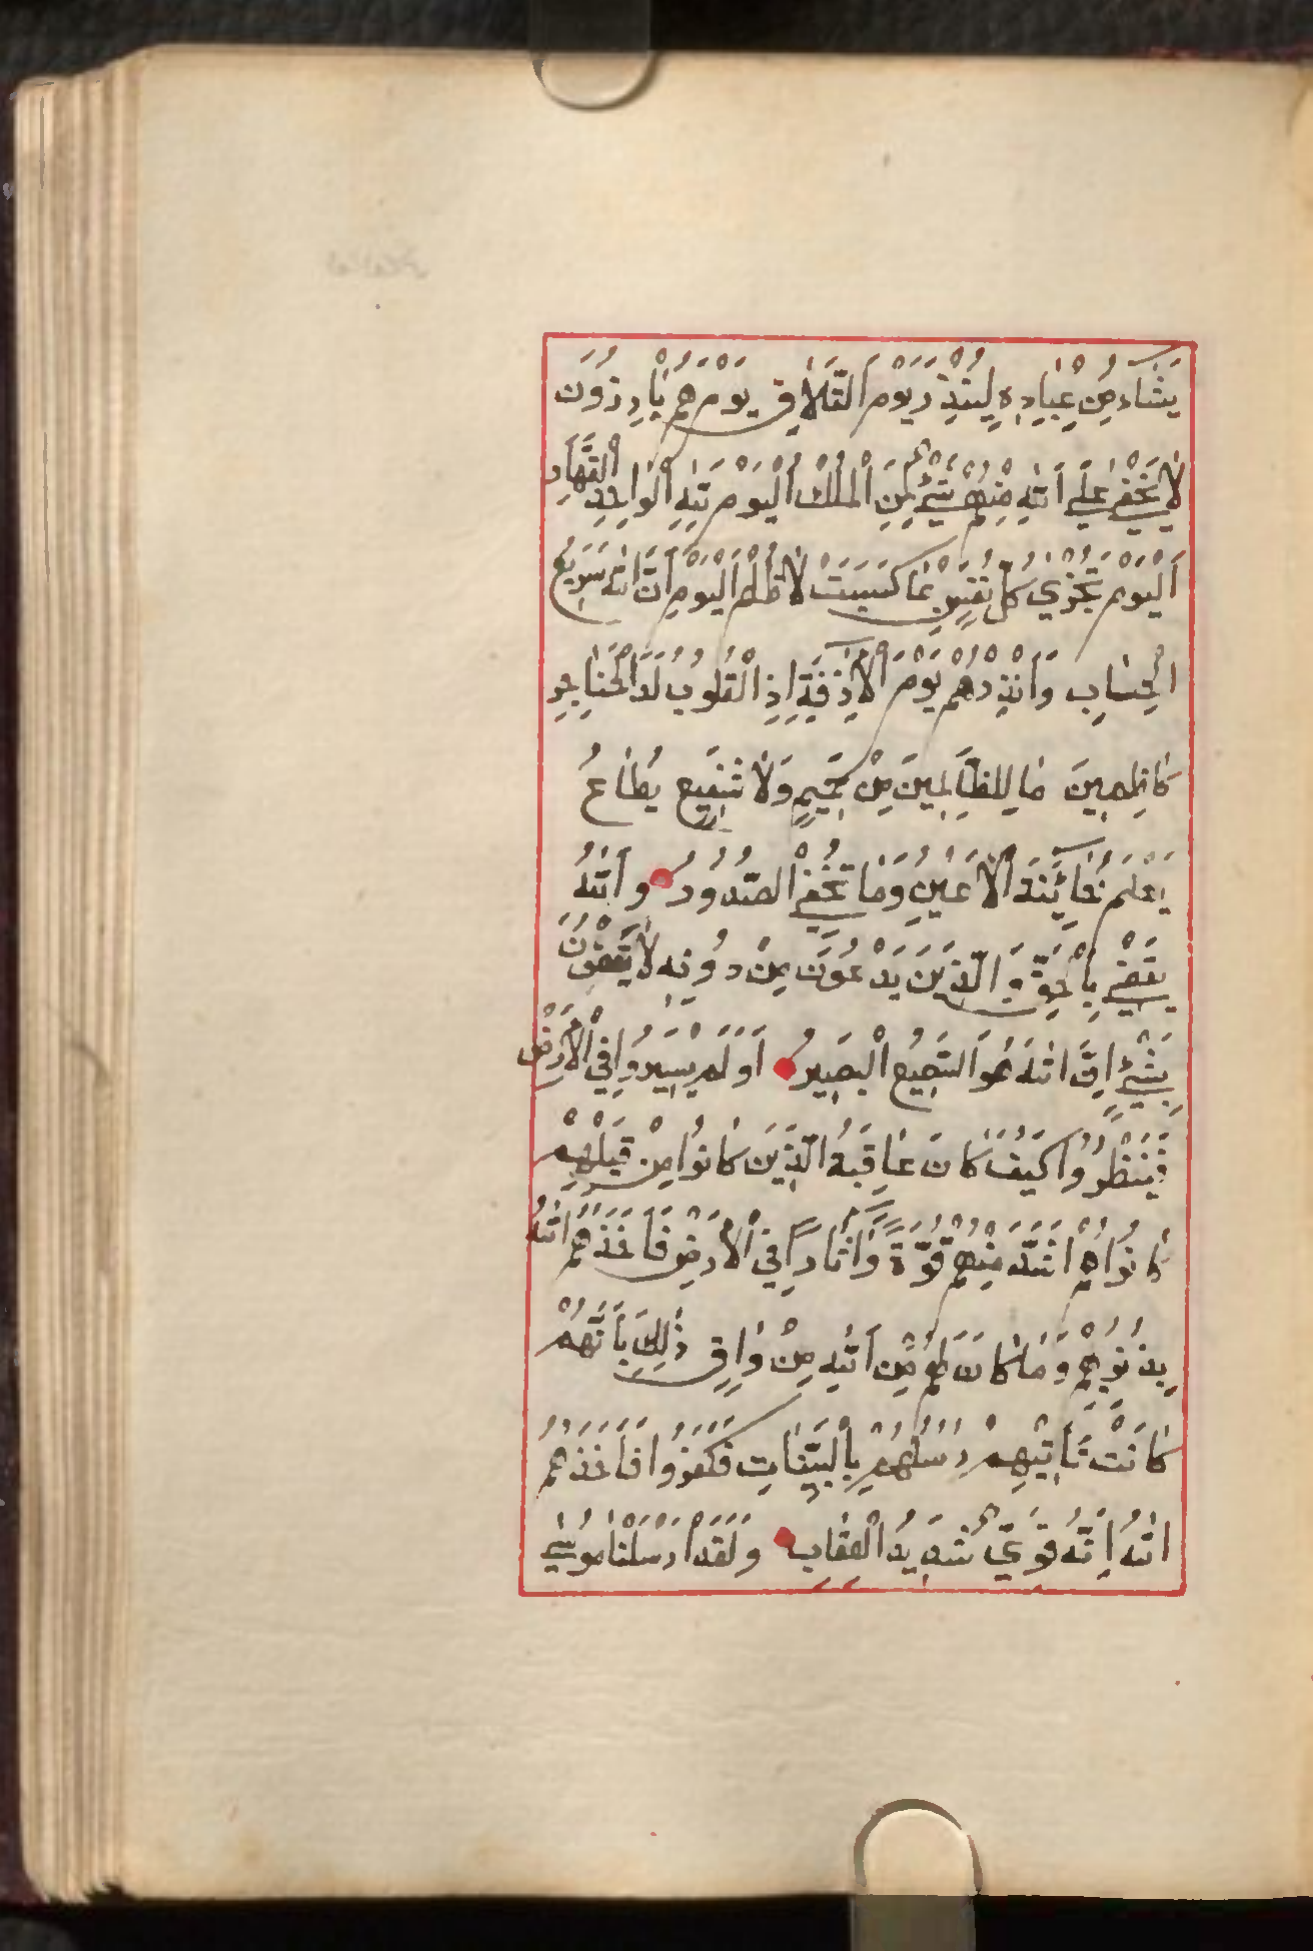 يَشَاءُ مِنْ عِبَادِهِ لِيُنْذِرَ يَوْمَ التَّلَاقِ يَوْمَ هُمْ بَارِزُونَ
لَا يَخْفٰى عَلَى اللّٰهِ مِنْهُمْ شَيْءٌ لِمَنِ الْمُلْكُ الْيَوْمَ لِلّٰهِ الْوَاحِدِ الْقَهَّارِ
اَلْيَوْمَ تُجْزٰي كُلُّ نَفْسٍ بِمَا كَسَبَتْ لَا ظُلْمَ الْيَوْمَ اِنَّ اللّٰهَ سَرِيعُ
الْحِسَابِ وَاَنْذِرْهُمْ يَوْمَ الْاٰزِفَةِ اِذِ الْقُلُوبُ لَدَا الْحَنَاجِرِ
كَاظِمِينَ مَا لِلظَّالِمِينَ مِنْ حَمِيمٍ وَلَا شَفِيعٍ يُطَاعُ
يَعْلَمُ خَائِنَةَ الْاَعْيُنِ وَمَا تُخْفِي الصُّدُورُ وَاللّٰهُ
يَقْضِي بِالْحَقِّ وَالَّذِينَ يَدْعُونَ مِنْ دُونِهِ لَا يَقْضُونَ
بِشَيْءٍ اِنَّ اللّٰهَ هُوَ السَّمِيعُ الْبَصِيرُ اَوَلَمْ يَسِيرُوا فِي الْاَرْضِ
فَيَنْظُرُوا كَيْفَ كَانَ عَاقِبَةُ الَّذِينَ كَانُوا مِنْ قَبْلِهِمْ
كَانُوا هُمْ اَشَدَّ مِنْهُمْ قُوَّةً وَاٰثَارًا فِي الْاَرْضِ فَاَخَذَهُمُ اللّٰهُ
بِذُنُوبِهِمْ وَمَا كَانَ لَهُمْ مِنَ اللّٰهِ مِنْ وَاقٍ ذٰلِكَ بِاَنَّهُمْ
كَانَتْ تَاْتِيهِمْ رُسُلُهُمْ بِالْبَيِّنَاتِ فَكَفَرُوا فَاَخَذَهُمُ
اللّٰهُ اِنَّهُ قَوِيٌّ شَدِيدُ الْعِقَابِ وَلَقَدْ اَرْسَلْنَا مُوسٰى